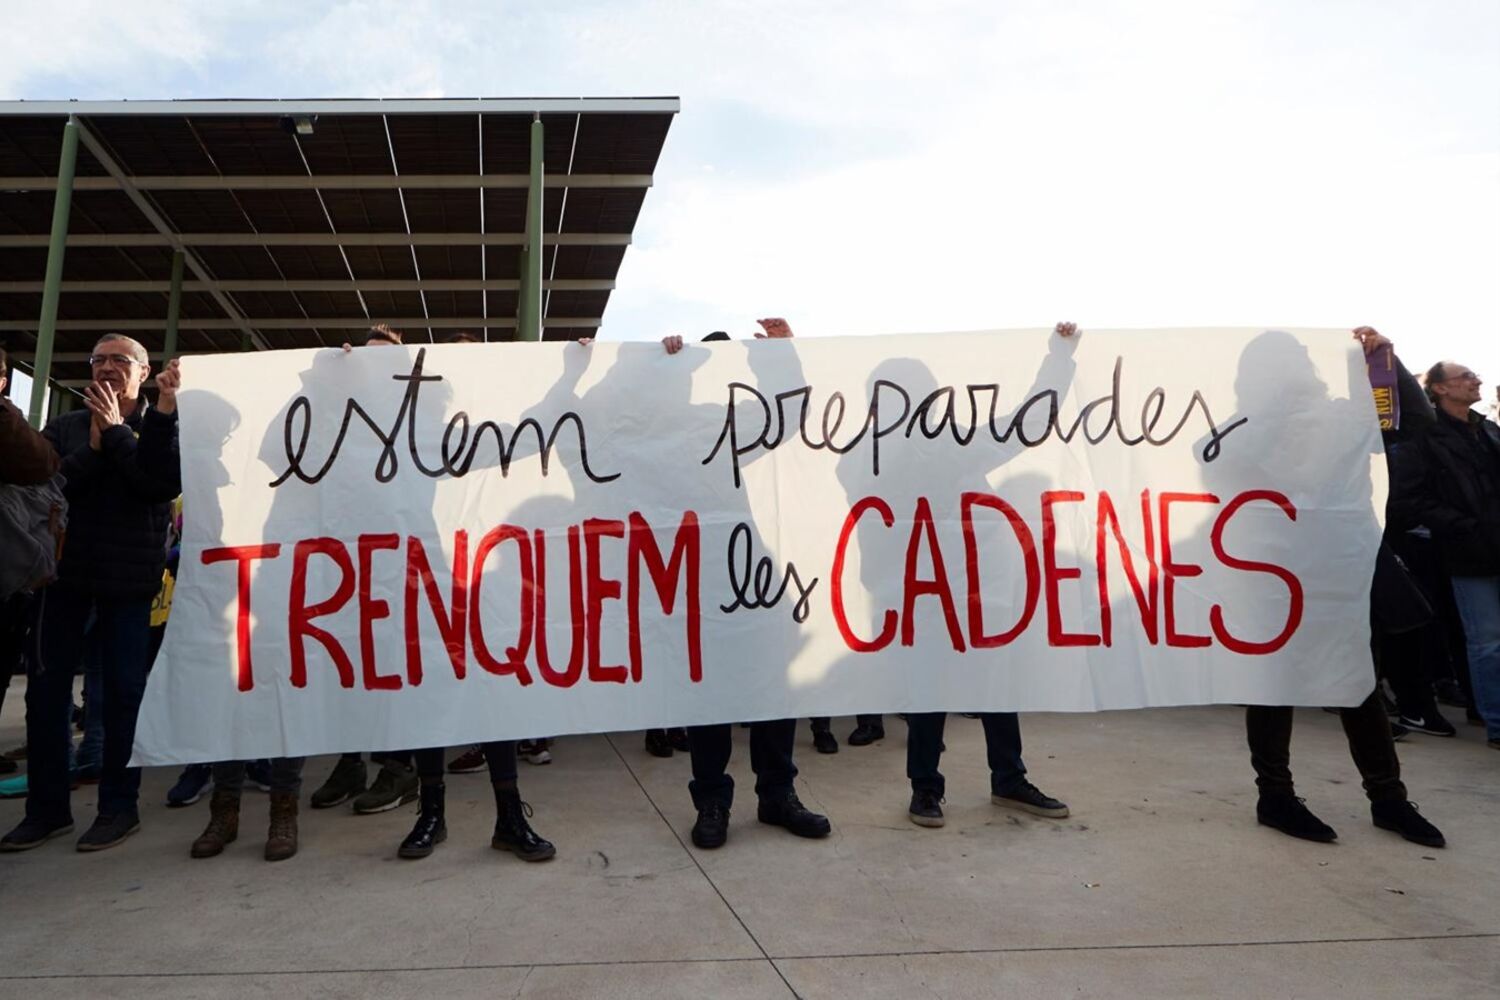 estem preparades
TRENQUEM les CADENES
NOW